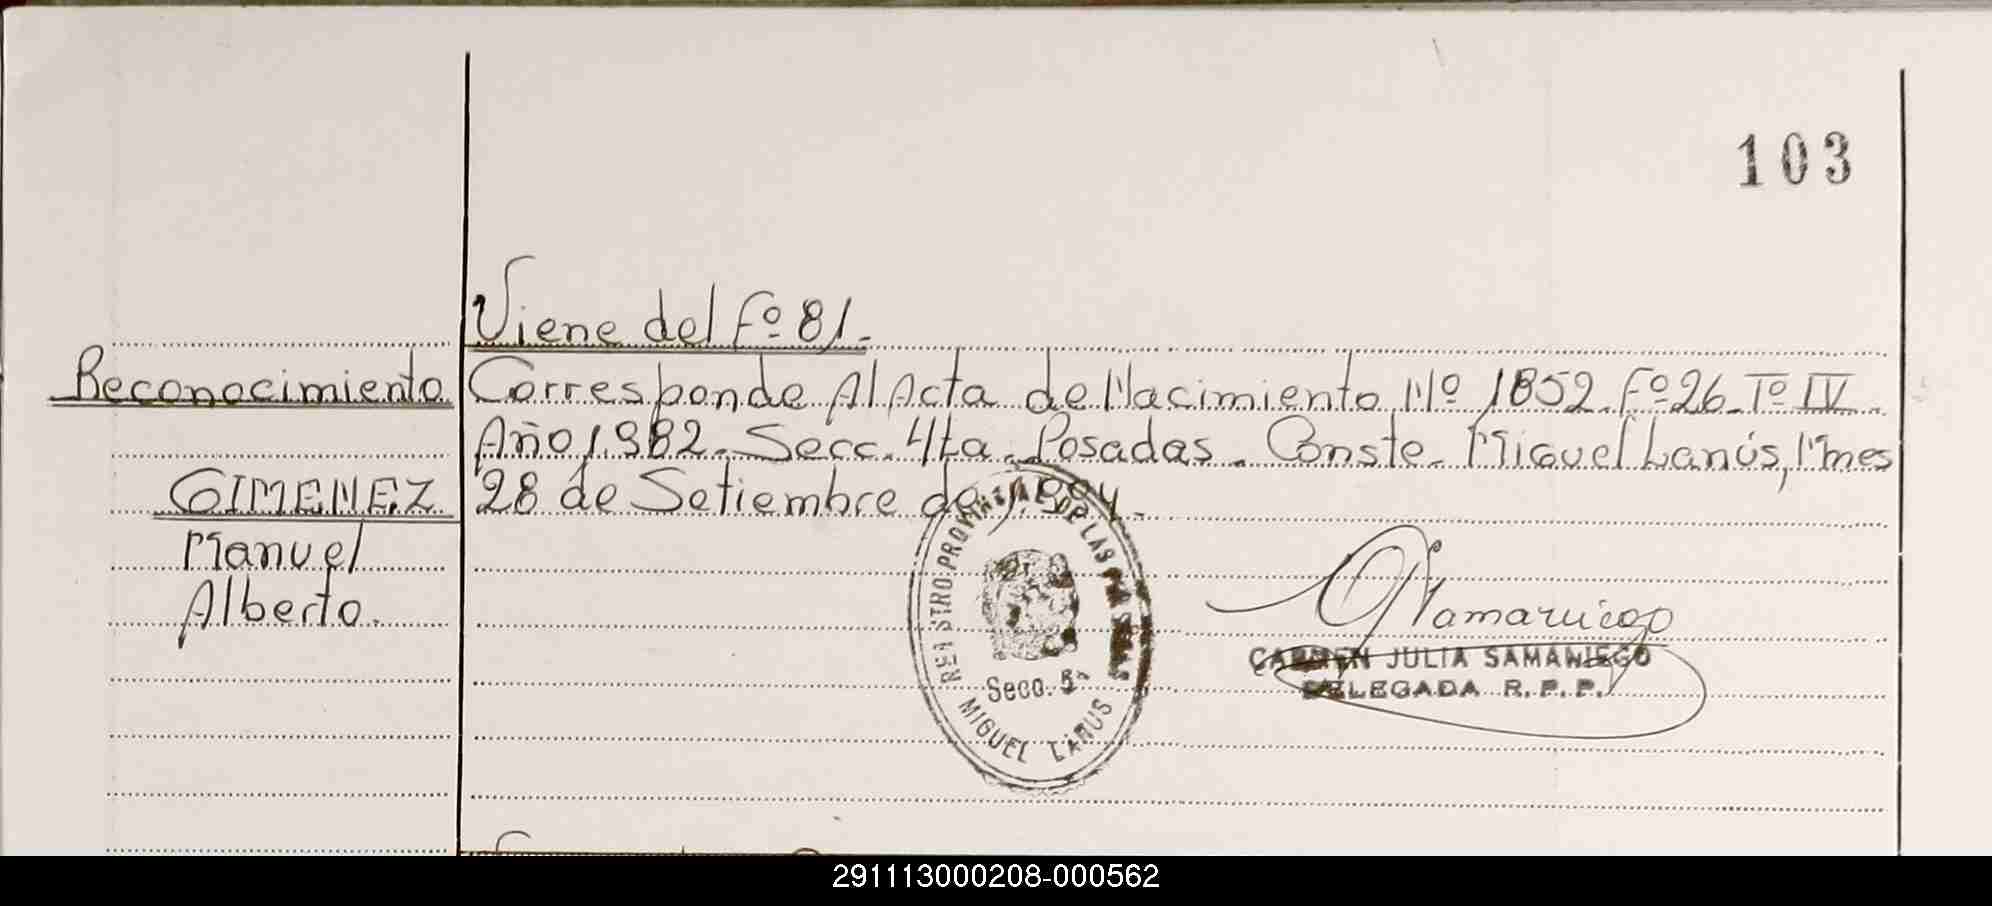 103
Viene del Fº 81.-
Reconocimiento Corresponde Al Acta de Nacimiento Nº 1852. Fº 26. Tº IV.
Año 1.982. Secc. 4ta. Posadas. Conste. Miguel Lanús, Mnes
GIMENEZ 28 de Setiembre de 1.994.
Manuel
Alberto.
REGISTRO PROVINCIAL DE LAS PERSONAS
Secc. 5ª
MIGUEL LANUS
CARMEN JULIA SAMANIEGO
DELEGADA R. P. P.
291113000208-000562